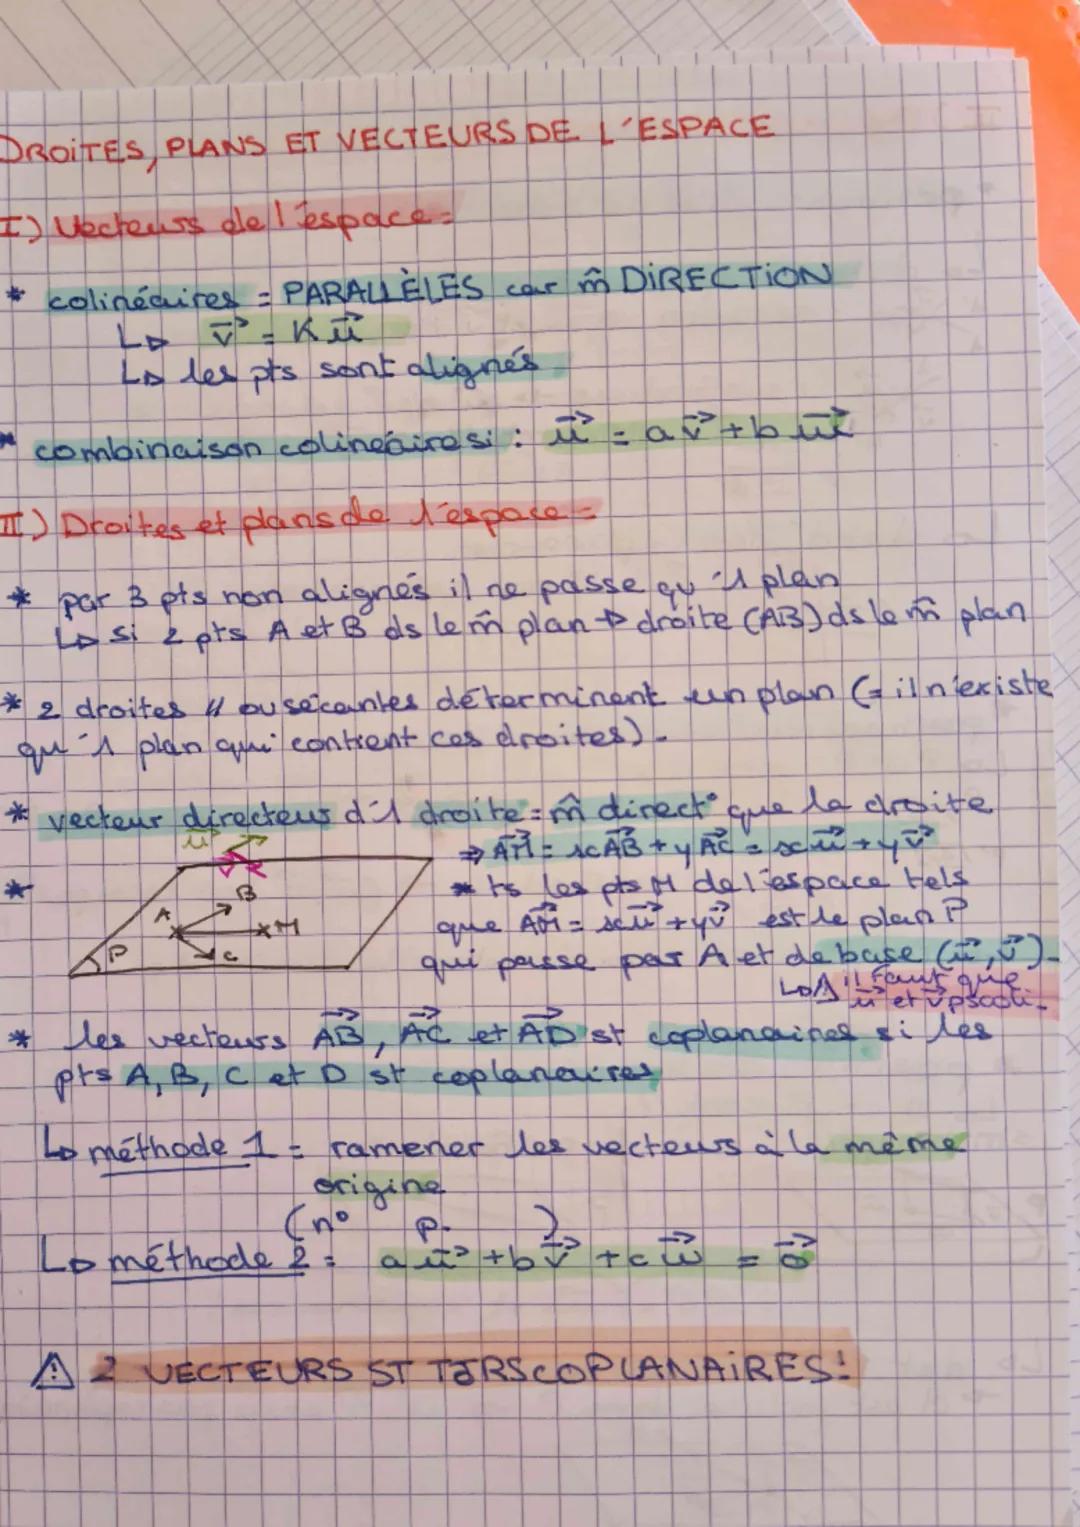 DROITES, PLANS ET VECTEURS DE L'ESPACE
I) Vecteurs de l'espace =
* colinéaires = PARALLÈLES car m̂ DIRECTION
↳ v⃗ = K u⃗
↳ les pts sont alignés
* combinaison colinéaire si : u⃗ = a v⃗ + b w⃗
II) Droites et plans de l'espace =
* par 3 pts non alignés il ne passe qu'1 plan
↳ si 2 pts A et B ds le m̂ plan → droite (AB) ds le m̂ plan
* 2 droites // ou sécantes déterminent un plan (= il n'existe
qu'1 plan qui contient ces droites).
* vecteur directeur d'1 droite = m̂ direct° que la droite
u⃗
⇒ AM⃗ = xAB⃗ + yAC⃗ = xu⃗ + yv⃗
v⃗
* B
* ts les pts M de l'espace tels
A M
que AM⃗ = xu⃗ + yv⃗ est le plan P
P C
qui passe par A et de base (u⃗, v⃗).
↳ ⚠ il faut que
u⃗ et v⃗ ps coli.
* les vecteurs AB⃗, AC⃗ et AD⃗ st coplanaires si les
pts A, B, C et D st coplanaires
↳ méthode 1 = ramener les vecteurs à la même
origine
(n° p. )
↳ méthode 2 = a u⃗ + b v⃗ + c w⃗ = 0⃗
⚠ 2 VECTEURS ST TJRS COPLANAIRES !